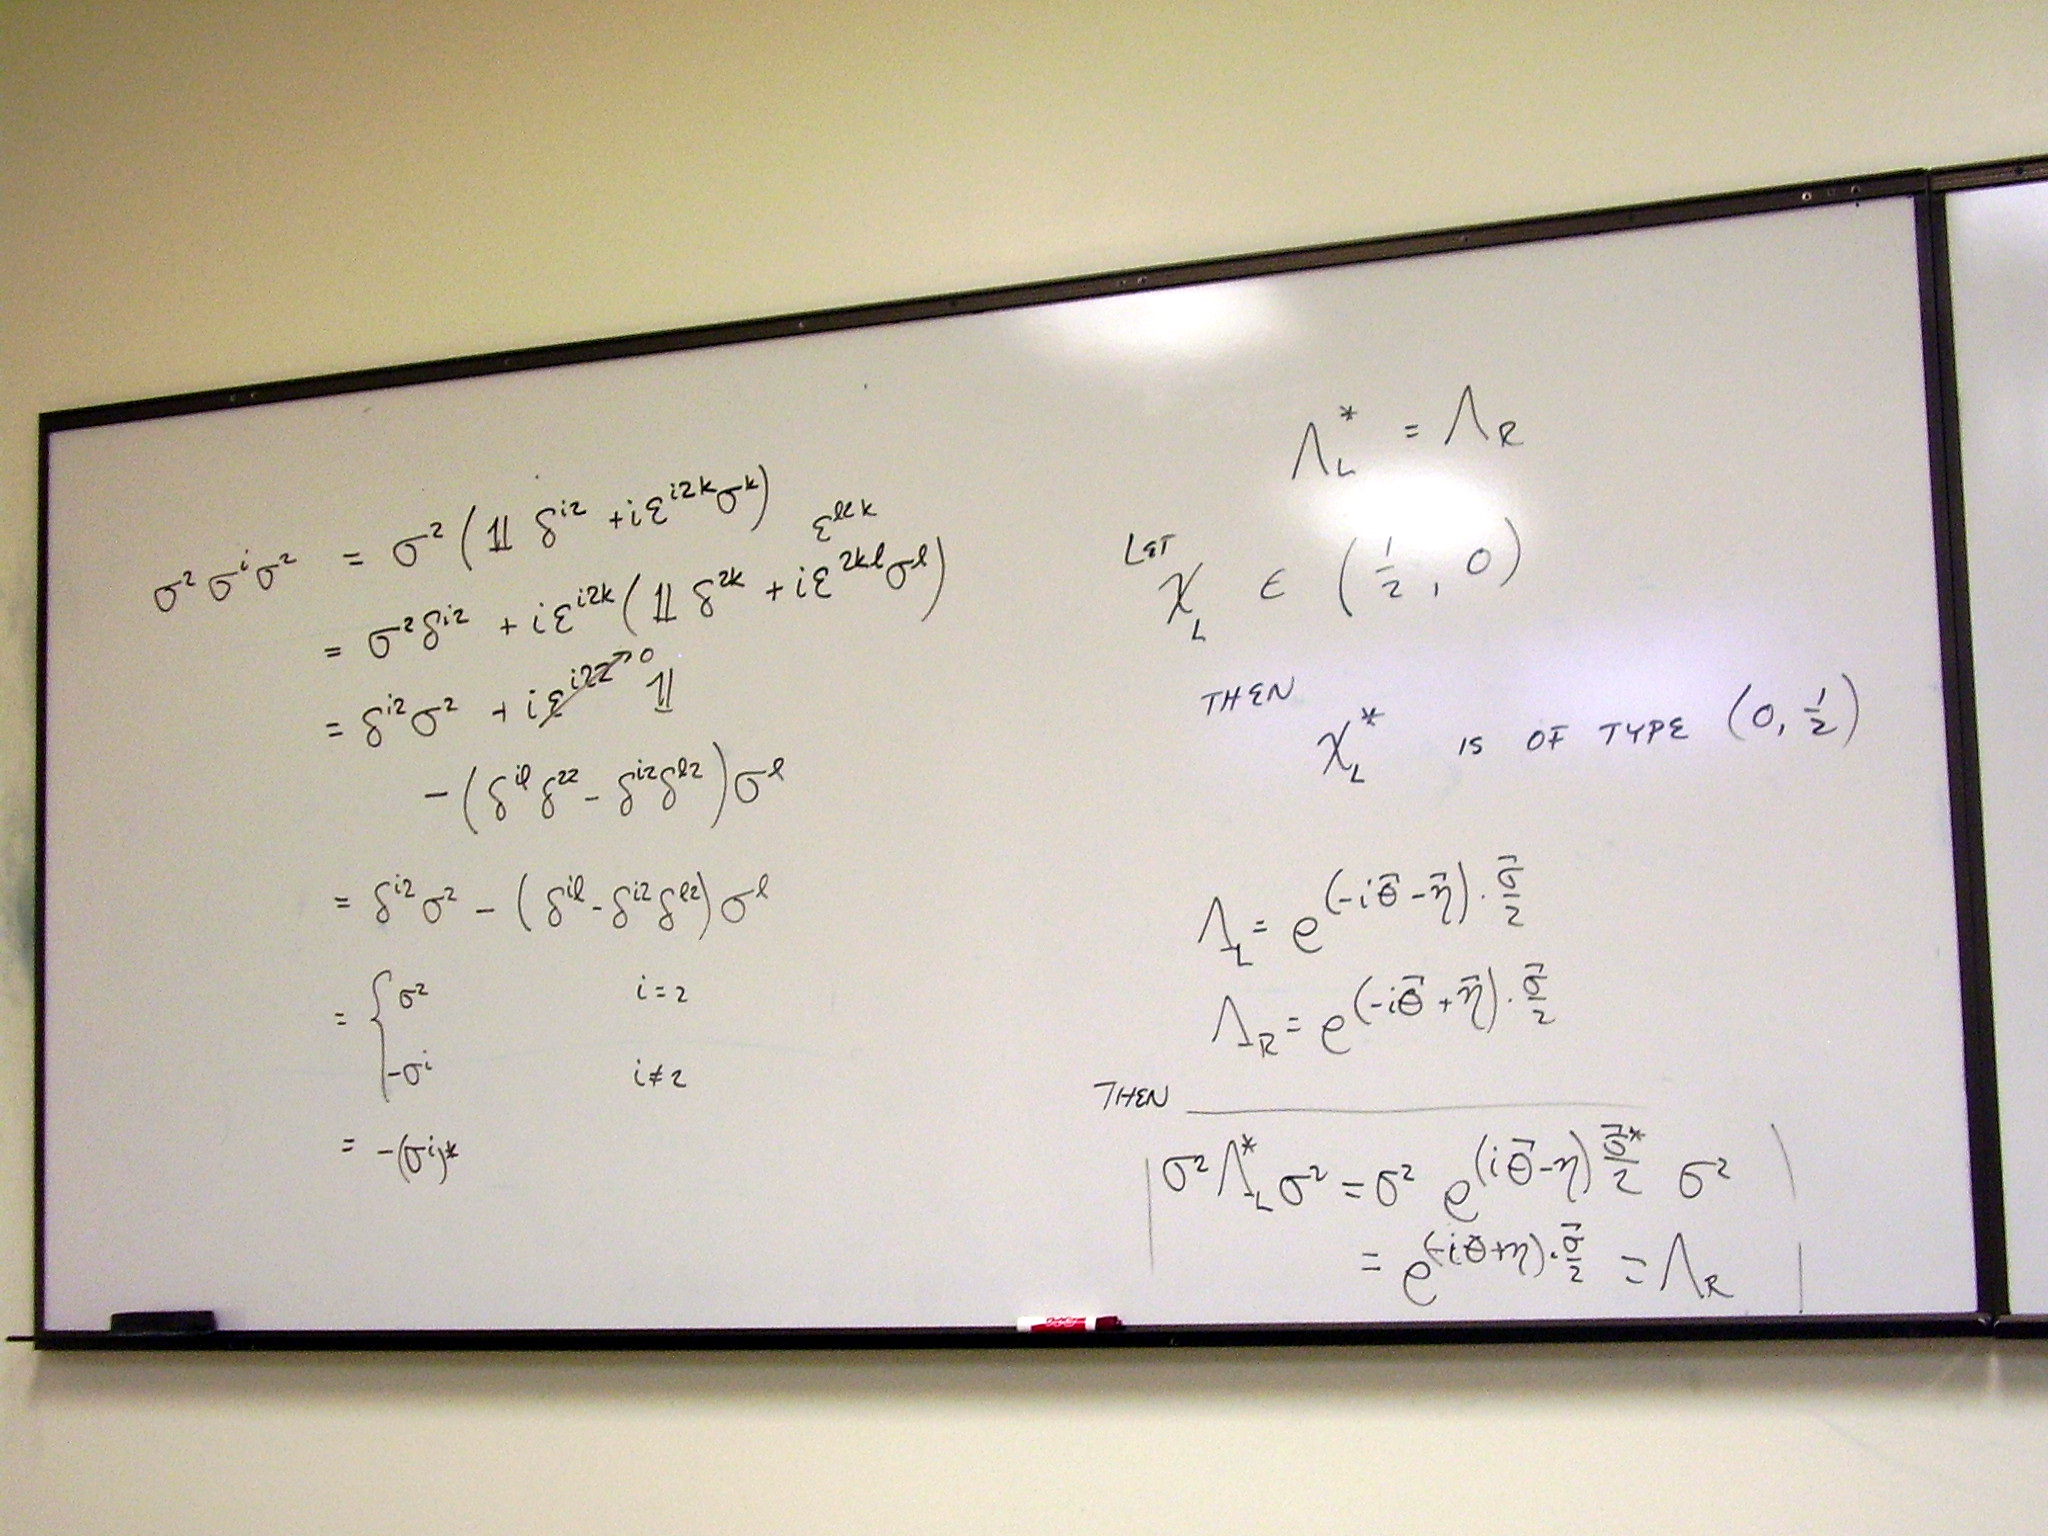 σ² σⁱ σ² = σ² (𝟙 δ^{i2} + iε^{i2k} σ^k)
ε^{l2k}
= σ² δ^{i2} + iε^{i2k} (𝟙 δ^{2k} + iε^{2kl} σ^l)
= δ^{i2} σ² + iε^{i22} → 0 𝟙
− (δ^{il} δ^{22} − δ^{i2} δ^{l2}) σ^l
= δ^{i2} σ² − (δ^{il} − δ^{i2} δ^{l2}) σ^l
= { σ² i = 2
−σⁱ i ≠ 2
= −(σⁱ)*
Λ_L^* = Λ_R
LET
χ_L ∈ (1/2, 0)
THEN
χ_L^* IS OF TYPE (0, 1/2)
Λ_L = e^{(−iθ⃗ − η⃗) · σ⃗/2}
Λ_R = e^{(−iθ⃗ + η⃗) · σ⃗/2}
THEN
σ² Λ_L^* σ² = σ² e^{(iθ⃗ − η) σ⃗*/2} σ²
= e^{(−iθ + η) · σ⃗/2} = Λ_R